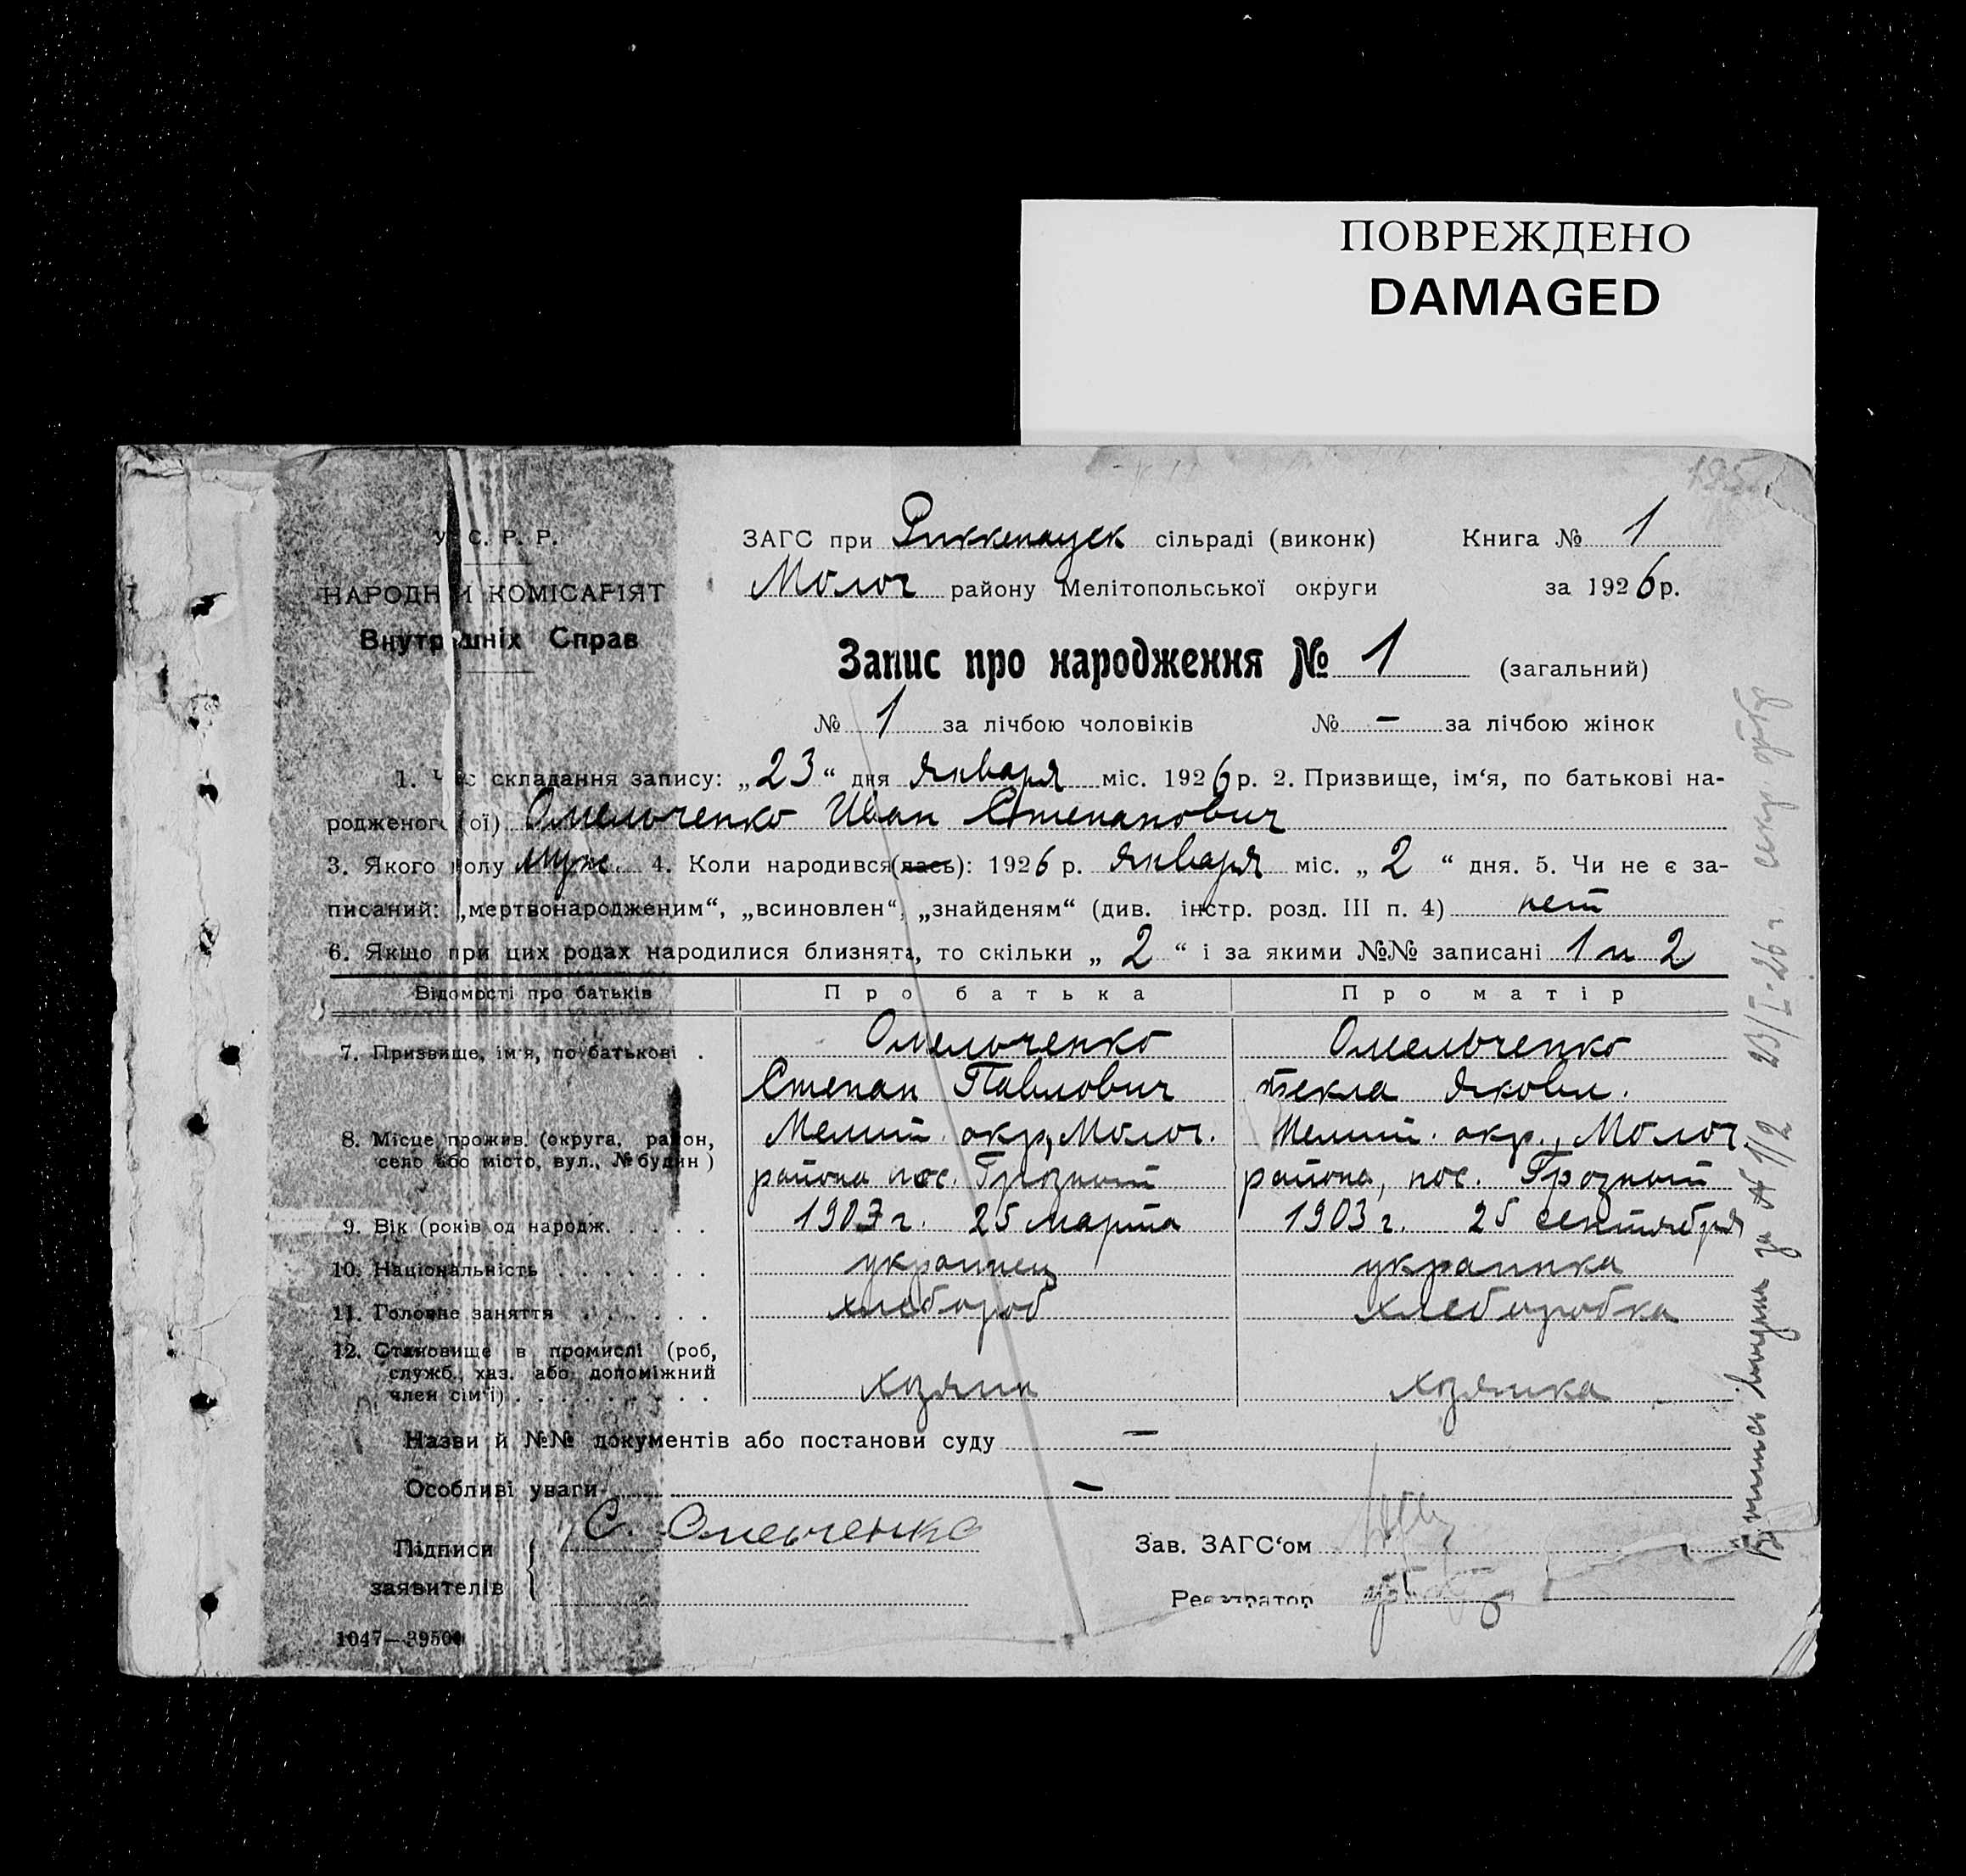 ПОВРЕЖДЕНО
DAMAGED
У. С. Р. Р.
НАРОДНИЙ КОМІСАРІЯТ
Внутрішніх Справ
ЗАГС при Риккенауск сільраді (виконк) Книга № 1
Молоч району Мелітопольської округи за 1926 р.
Запис про народження № 1 (загальний)
№ 1 за лічбою чоловіків № — за лічбою жінок
1. Час складання запису: „23“ дня января міс. 1926 р. 2. Призвище, ім‘я, по батькові на-
родженого (ої) Омельченко Иван Степанович
3. Якого полу муж. 4. Коли народився(лась): 1926 р. января міс. „2“ дня. 5. Чи не є за-
писаний: „мертвонародженим“, „всиновлен“, „знайденям“ (див. інстр. розд. III п. 4) нет
6. Якщо при цих родах народилися близнята, то скільки „2“ і за якими №№ записані 1 и 2
Відомості про батьків Про батька Про матір
7. Призвище, ім‘я, по батькові . Омельченко Омельченко
Степан Павлович Текла Яковл.
8. Місце прожив. (округа, район, Мелит. окр., Молоч. Мелит. окр., Молоч
село або місто, вул., № будин) района пос. Грозный района, пос. Грозный
9. Вік (років од народж. . . . . 1903 г. 25 марта 1903 г. 25 сентября
10. Національність . . . . . . . украинец украинка
11. Головне заняття . . . . . . хлебороб хлеборобка
12. Становище в промислі (роб,
служб., хаз. або допоміжний
член сім‘ї) . . . . . . . . . хозяин хозяйка
Назви й №№ документів або постанови суду —
Особливі уваги —
Підписи
заявителів
С. Омельченко
Зав. ЗАГС‘ом
Реєстратор
1047—39500
за № 1/2 23/I-26 г. секр